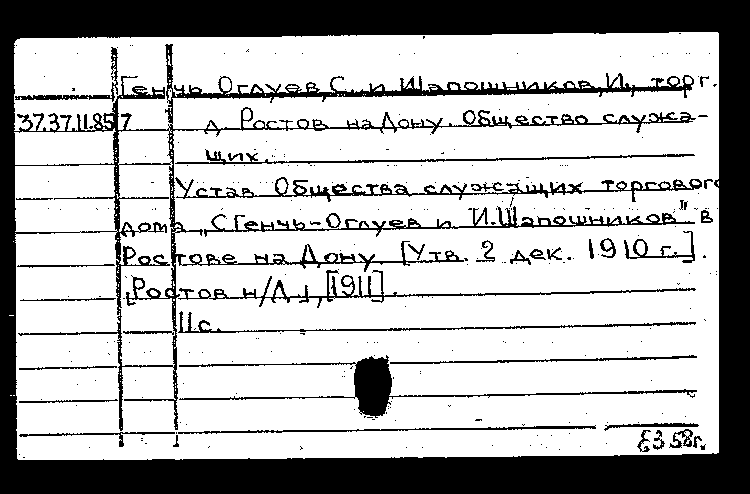 Генчь Оглуев, С. и Шапошников, И., торг.
37.37.11.857 д. Ростов на Дону. Общество служа-
щих.
Устав Общества служащих торгового
дома „С Генчь-Оглуев и И.Шапошников" в
Ростове на Дону. [Утв. 2 дек. 1910 г.].
[Ростов н/Д.], [1911].
11 с.
Е3 58г.